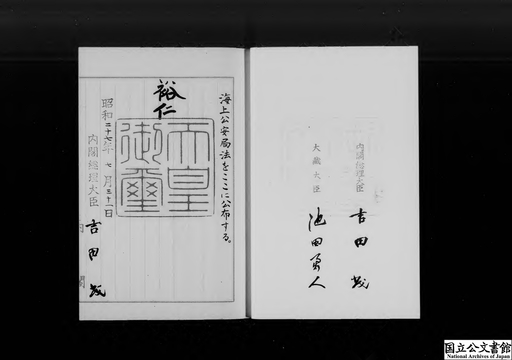 海上公安局法をここに公布する。
裕仁
天皇
御璽
昭和二十七年七月三十一日
内閣総理大臣
吉田茂
内閣
内閣総理大臣 吉田茂
大蔵大臣 池田勇人
国立公文書館
National Archives of Japan